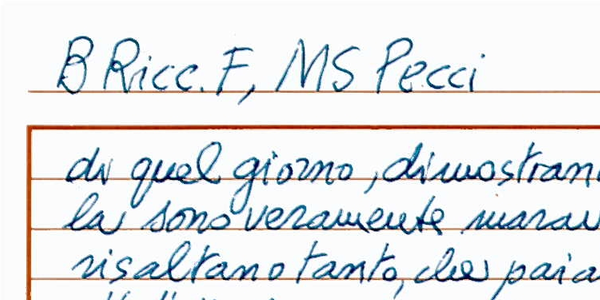 B Ricc. F, MS Pecci
di quel giorno, dimostran
la sono veramente marav
risaltano tanto, che paia